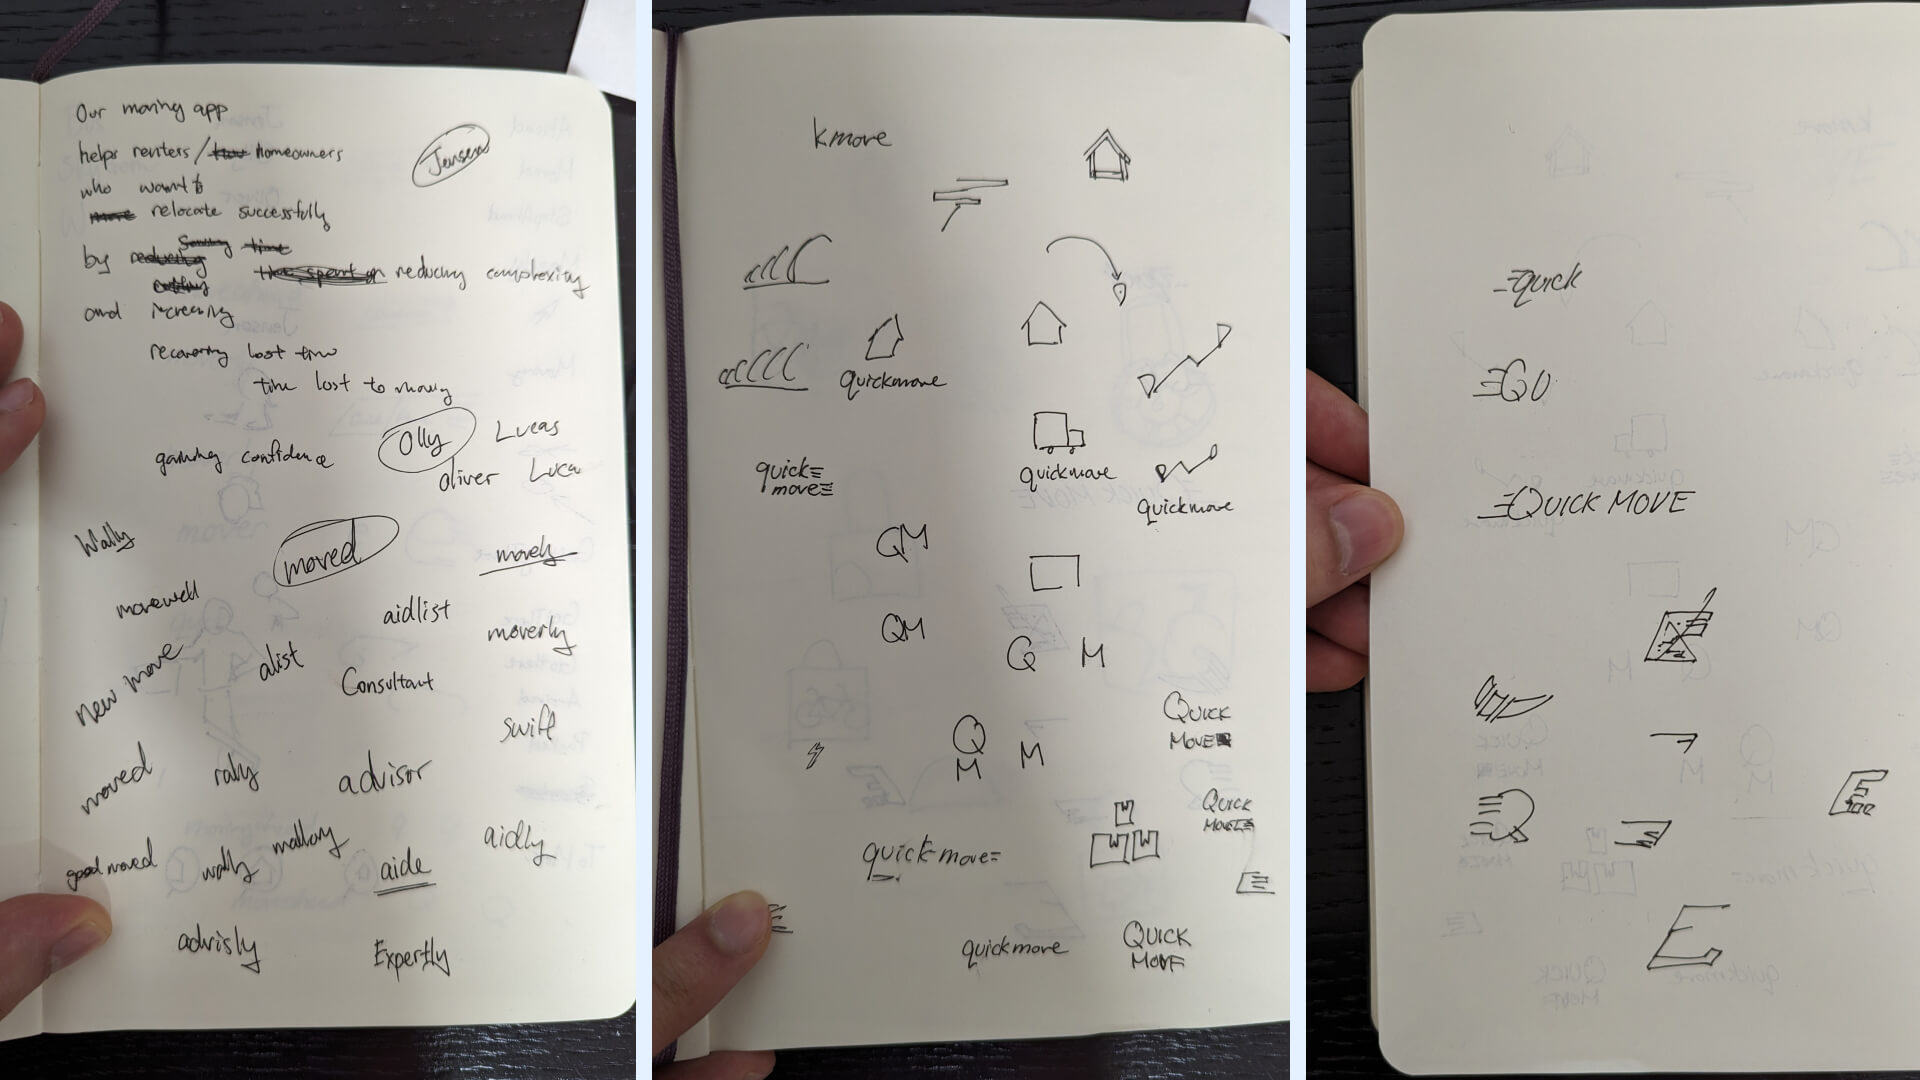 Our moving app
helps renters / homeowners
Jensen
who want to
relocate successfully
by reducing saving time
time spent on reducing complexity
and increasing
recovering lost time
time lost to moving
gaining confidence
Olly
Lucas
oliver
Luca
Wally
moved
movely
movewell
aidlist
moverly
new move
alist
Consultant
swift
moved
rally
advisor
good moved
wally
mallory
aide
aidly
advisly
Expertly
kmove
quickmove
quick
move
quickmove
quickmove
QM
QM
Q M
Q
M
M
QUICK
MOVE
QUICK
MOVE
quickmove
quickmove
QUICK
MOVE
quick
GO
QUICK MOVE
Q